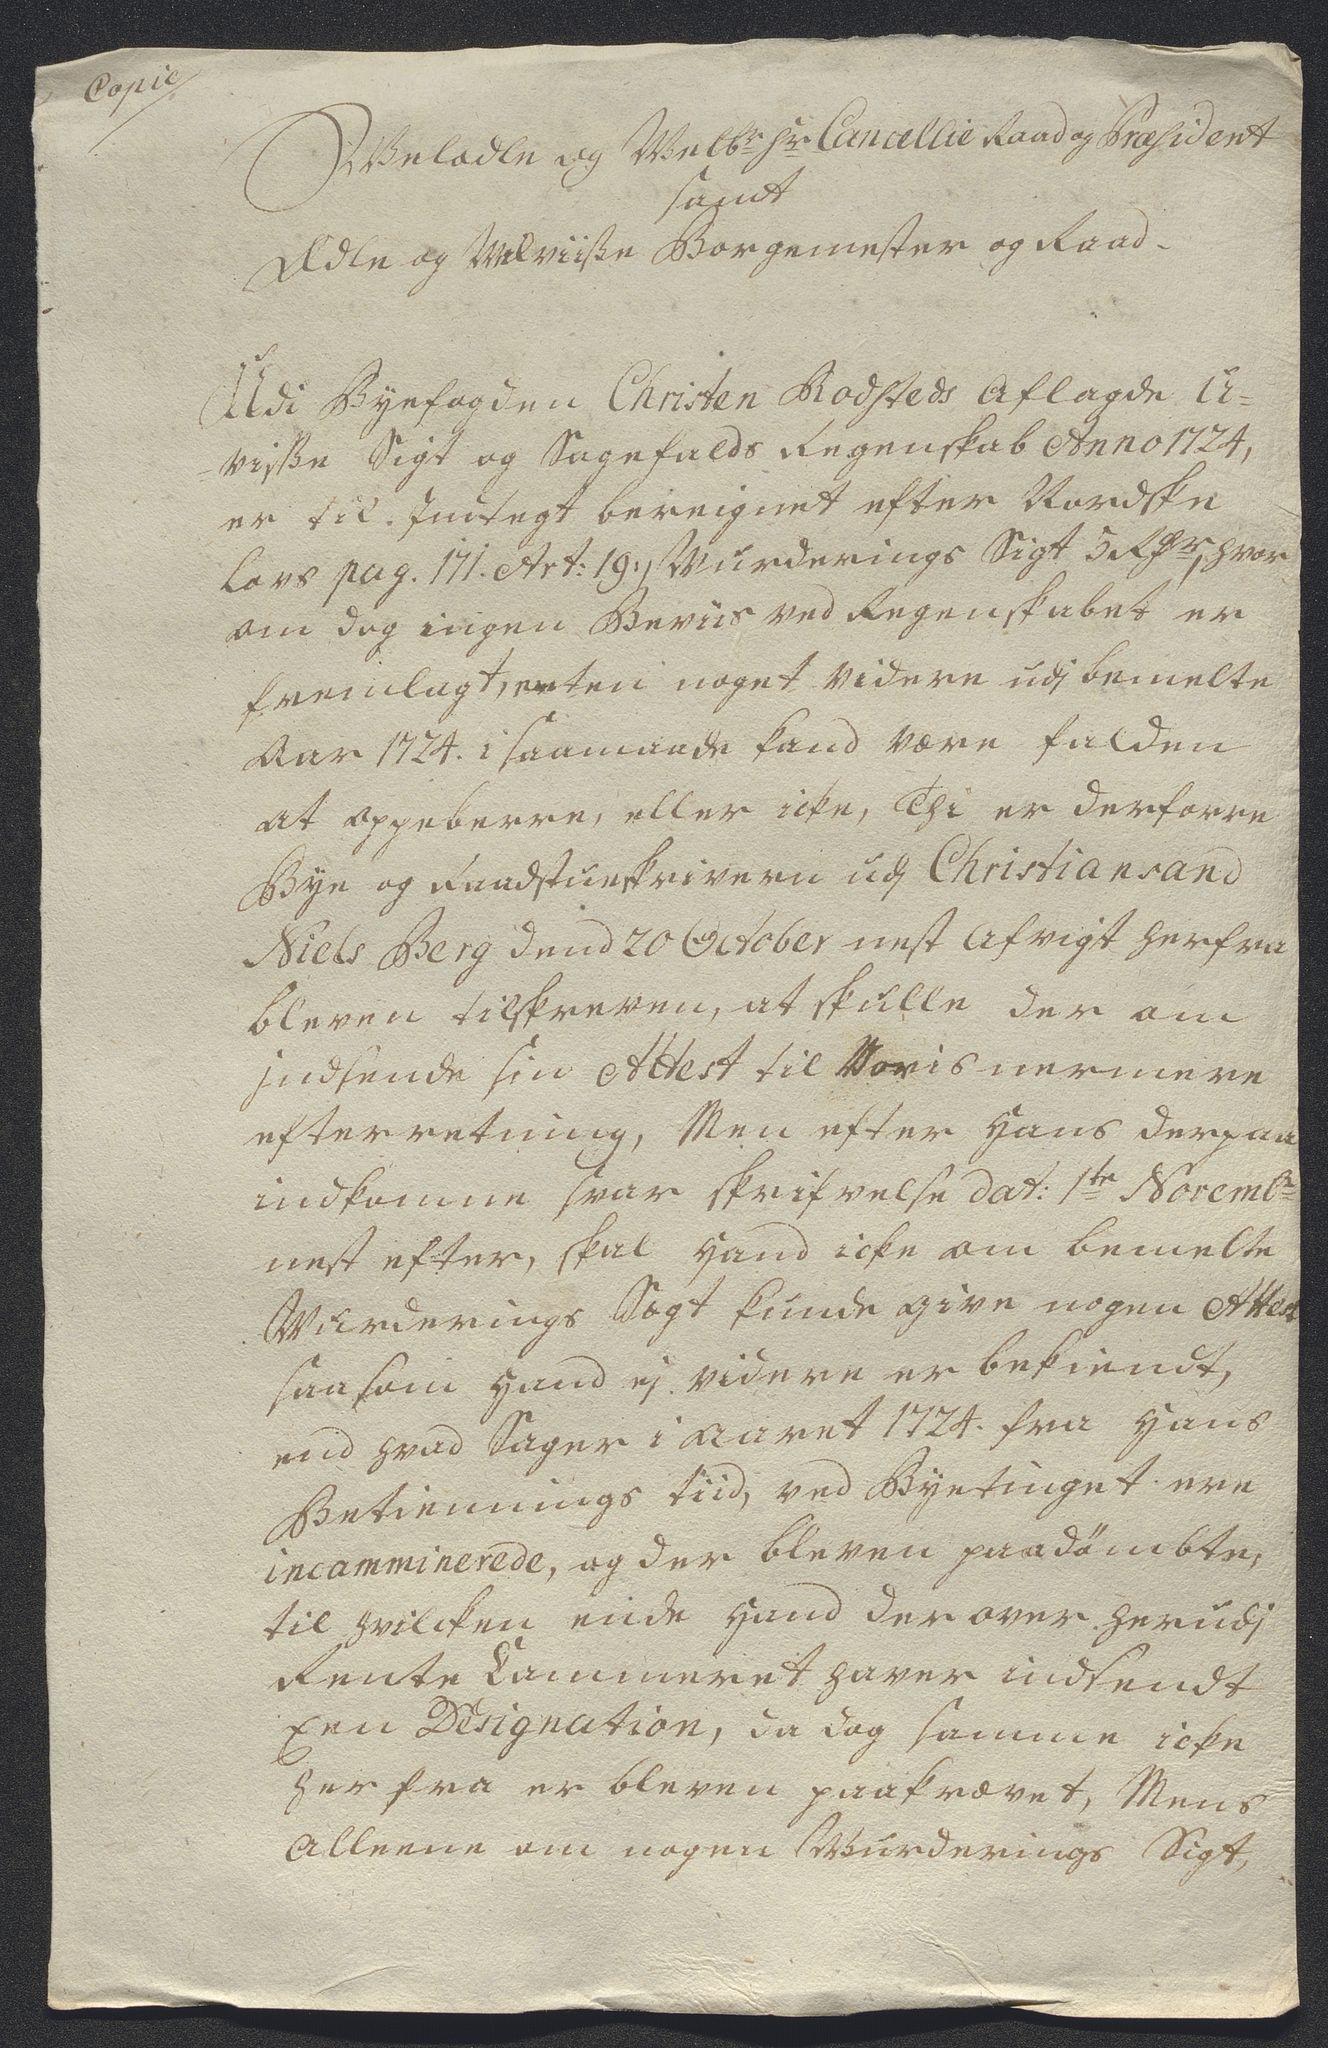 Copie
Welædle og Welbr hr Cancellie Raad og Præsident
samt
Ædle og Velviisse Borgemester og Raad.
Udi Byefogden Christen Rodsteds Aflagde U-
-visse Sigt og Sagefalds Regenskab Anno 1724,
er til Indtegt bereignet efter Nordske
Lovs pag. 171. Art: 19., Wurderings Sigt 3 Rdr, hvor
om dog ingen Beviis ved Regenskabet er
fremlagt, enten noget videre udj bemelte
Aar 1724. i saamaade kand være falden
at oppeberre, eller icke, Thi er derforre
Bye og Raadstueskriveren udj Christiansand
Niels Berg dend 20 October nest Afvigt herfra
bleven tilskreven, at skulle der om
indsende sin Attest til Voris nermere
efterretning, Men efter Hans derpaa
indkomne svar skrifvelse dat: 1te Novembr
nest efter, skal Hand icke om bemelte
Wurderings Sigt kunde give nogen Attest
saasom Hand ej videre er bekiendt,
end hvad Sager i Aaret 1724. fra Hans
Betiennings tiid, ved Byetinget ere
incamminerede, og der bleven paadömbte,
til hvilcken ende Hand derover herudj
Rente Cammeret haver indsendt
Een Designation, da dog samme icke
her fra er bleven paakrævet, Mens
Alleene om nogen Wurderings Sigt,